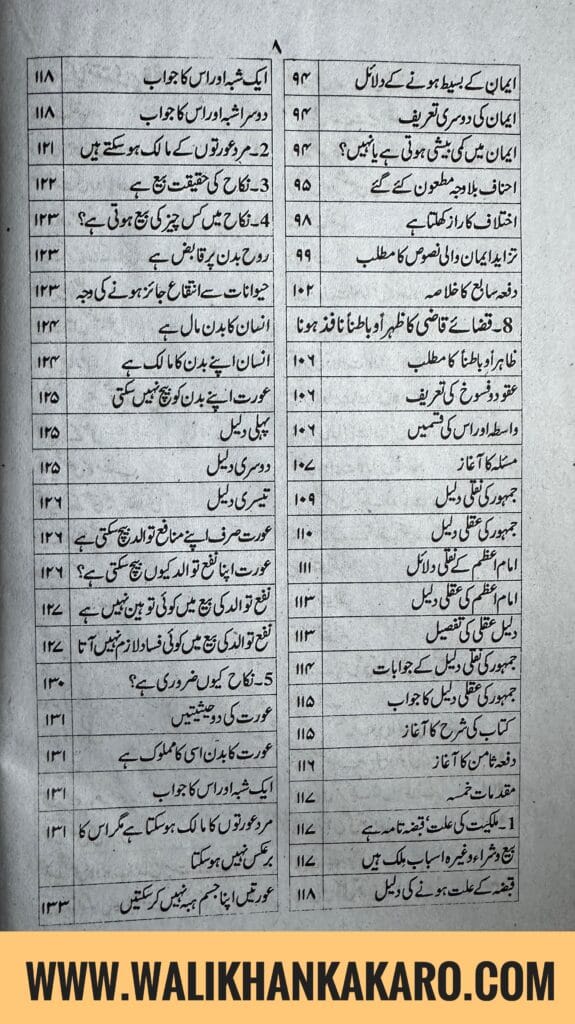 ۸
ایمان کے بسیط ہونے کے دلائل ۹۴
ایمان کی دوسری تعریف ۹۴
ایمان میں کمی بیشی ہوتی ہے یا نہیں؟ ۹۴
احناف بلاوجہ مطعون کئے گئے ۹۵
اختلاف کا راز کھلتا ہے ۹۸
تزاید ایمان والی نصوص کا مطلب ۹۹
دفعہ سابع کا خلاصہ ۱۰۲
8۔ قضائے قاضی کا ظہراً و باطناً نافذ ہونا
ظاہراً و باطناً کا مطلب ۱۰۶
عقود و فسوخ کی تعریف ۱۰۶
واسطہ اور اس کی قسمیں ۱۰۶
مسئلہ کا آغاز ۱۰۷
جمہور کی نقلی دلیل ۱۰۹
جمہور کی عقلی دلیل ۱۱۰
امام اعظم کے نقلی دلائل ۱۱۱
امام اعظم کی عقلی دلیل ۱۱۳
دلیل عقلی کی تفصیل ۱۱۳
جمہور کی نقلی دلیل کے جوابات ۱۱۴
جمہور کی عقلی دلیل کا جواب ۱۱۵
کتاب کی شرح کا آغاز ۱۱۵
دفعہ ثامن کا آغاز ۱۱۶
مقدمات خمسہ ۱۱۷
1۔ ملکیت کی علت، قبضہ تامہ ہے ۱۱۷
بیع و شراء وغیرہ اسباب مِلک ہیں ۱۱۷
قبضہ کے علت ہونے کی دلیل ۱۱۸
ایک شبہ اور اس کا جواب ۱۱۸
دوسرا شبہ اور اس کا جواب ۱۱۸
2۔ مرد عورتوں کے مالک ہوسکتے ہیں ۱۲۱
3۔ نکاح کی حقیقت بیع ہے ۱۲۲
4۔ نکاح میں کس چیز کی بیع ہوتی ہے؟ ۱۲۳
روح بدن پر قابض ہے ۱۲۳
حیوانات سے انتفاع جائز ہونے کی وجہ ۱۲۳
انسان کا بدن مال ہے ۱۲۴
انسان اپنے بدن کا مالک ہے ۱۲۴
عورت اپنے بدن کو بیچ نہیں سکتی ۱۲۵
پہلی دلیل ۱۲۵
دوسری دلیل ۱۲۵
تیسری دلیل ۱۲۶
عورت صرف اپنے منافع توالد بیچ سکتی ہے ۱۲۶
عورت اپنا نفع توالد کیوں بیچ سکتی ہے؟ ۱۲۶
نفع توالد کی بیع میں کوئی توہین نہیں ہے ۱۲۷
نفع توالد کی بیع میں کوئی فساد لازم نہیں آتا ۱۲۷
5۔ نکاح کیوں ضروری ہے؟ ۱۳۰
عورت کی دو حیثیتیں ۱۳۱
عورت کا بدن اسی کا مملوک ہے ۱۳۱
ایک شبہ اور اس کا جواب ۱۳۱
مرد عورتوں کا مالک ہوسکتا ہے مگر اس کا ۱۳۱
برعکس نہیں ہوسکتا
عورتیں اپنا جسم ہبہ نہیں کرسکتیں ۱۳۳
WWW.WALIKHANKAKARO.COM